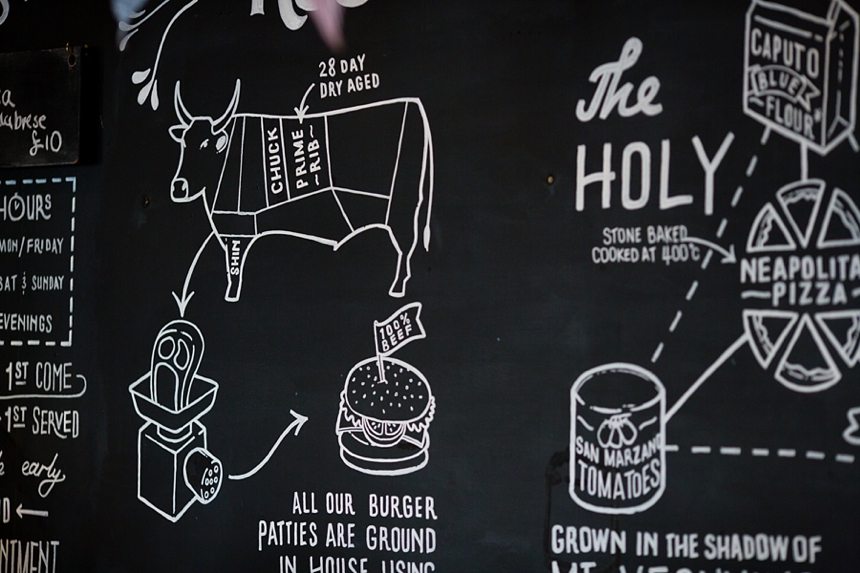 £10
HOURS
MON/FRIDAY
SAT & SUNDAY
EVENINGS
1ST COME
1ST SERVED
early
28 DAY
DRY AGED
CHUCK
PRIME
RIB
SHIN
100%
BEEF
ALL OUR BURGER
PATTIES ARE GROUND
IN HOUSE USING
The
HOLY
STONE BAKED
COOKED AT 400°C
CAPUTO
BLUE
FLOUR
NEAPOLITA
PIZZA
SAN MARZANO
TOMATOES
GROWN IN THE SHADOW OF